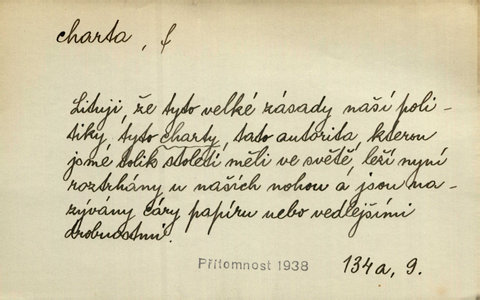 charta, f
Lituji, že tyto velké zásady naší poli-
tiky, tyto charty, tato autorita, kterou
jsme tolik století měli ve světě, leží nyní
roztrhány u našich nohou a jsou na-
zývány cáry papíru nebo vedlejšími
drobnostmi.
Přítomnost 1938 134a, 9.